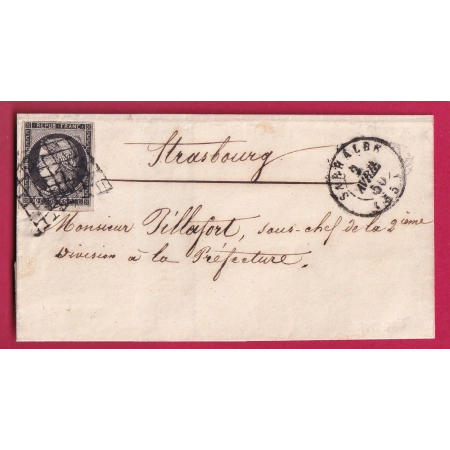 REPUB. FRANC.
Strasbourg
SARRALBE
2
AVRIL
50
Monsieur Pillafort, sous-chef de la 2ième
Division à la Préfecture.